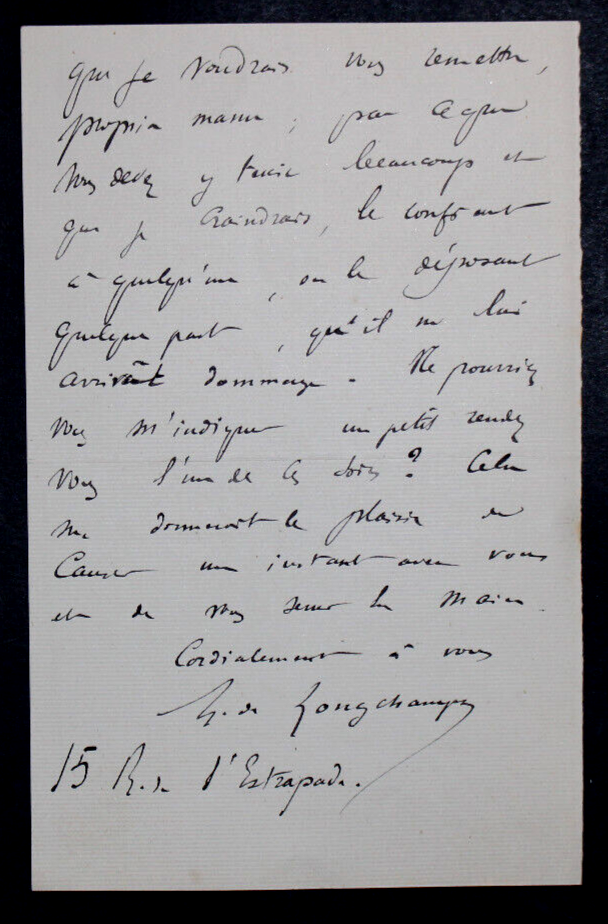 que je voudrais vous remettre,
propria manu, parce que
vous devez y tenir beaucoup et
que je craindrais, le confiant
à quelqu'un, ou le déposant
quelque part, qu'il ne lui
arrivât dommage. Ne pourriez
vous m'indiquer un petit rendez
vous l'un de ces soirs? Cela
me donnerait le plaisir de
causer un instant avec vous
et de vous serrer la main.
Cordialement à vous
G. de Longchamps
15 R. de l'Estrapade.